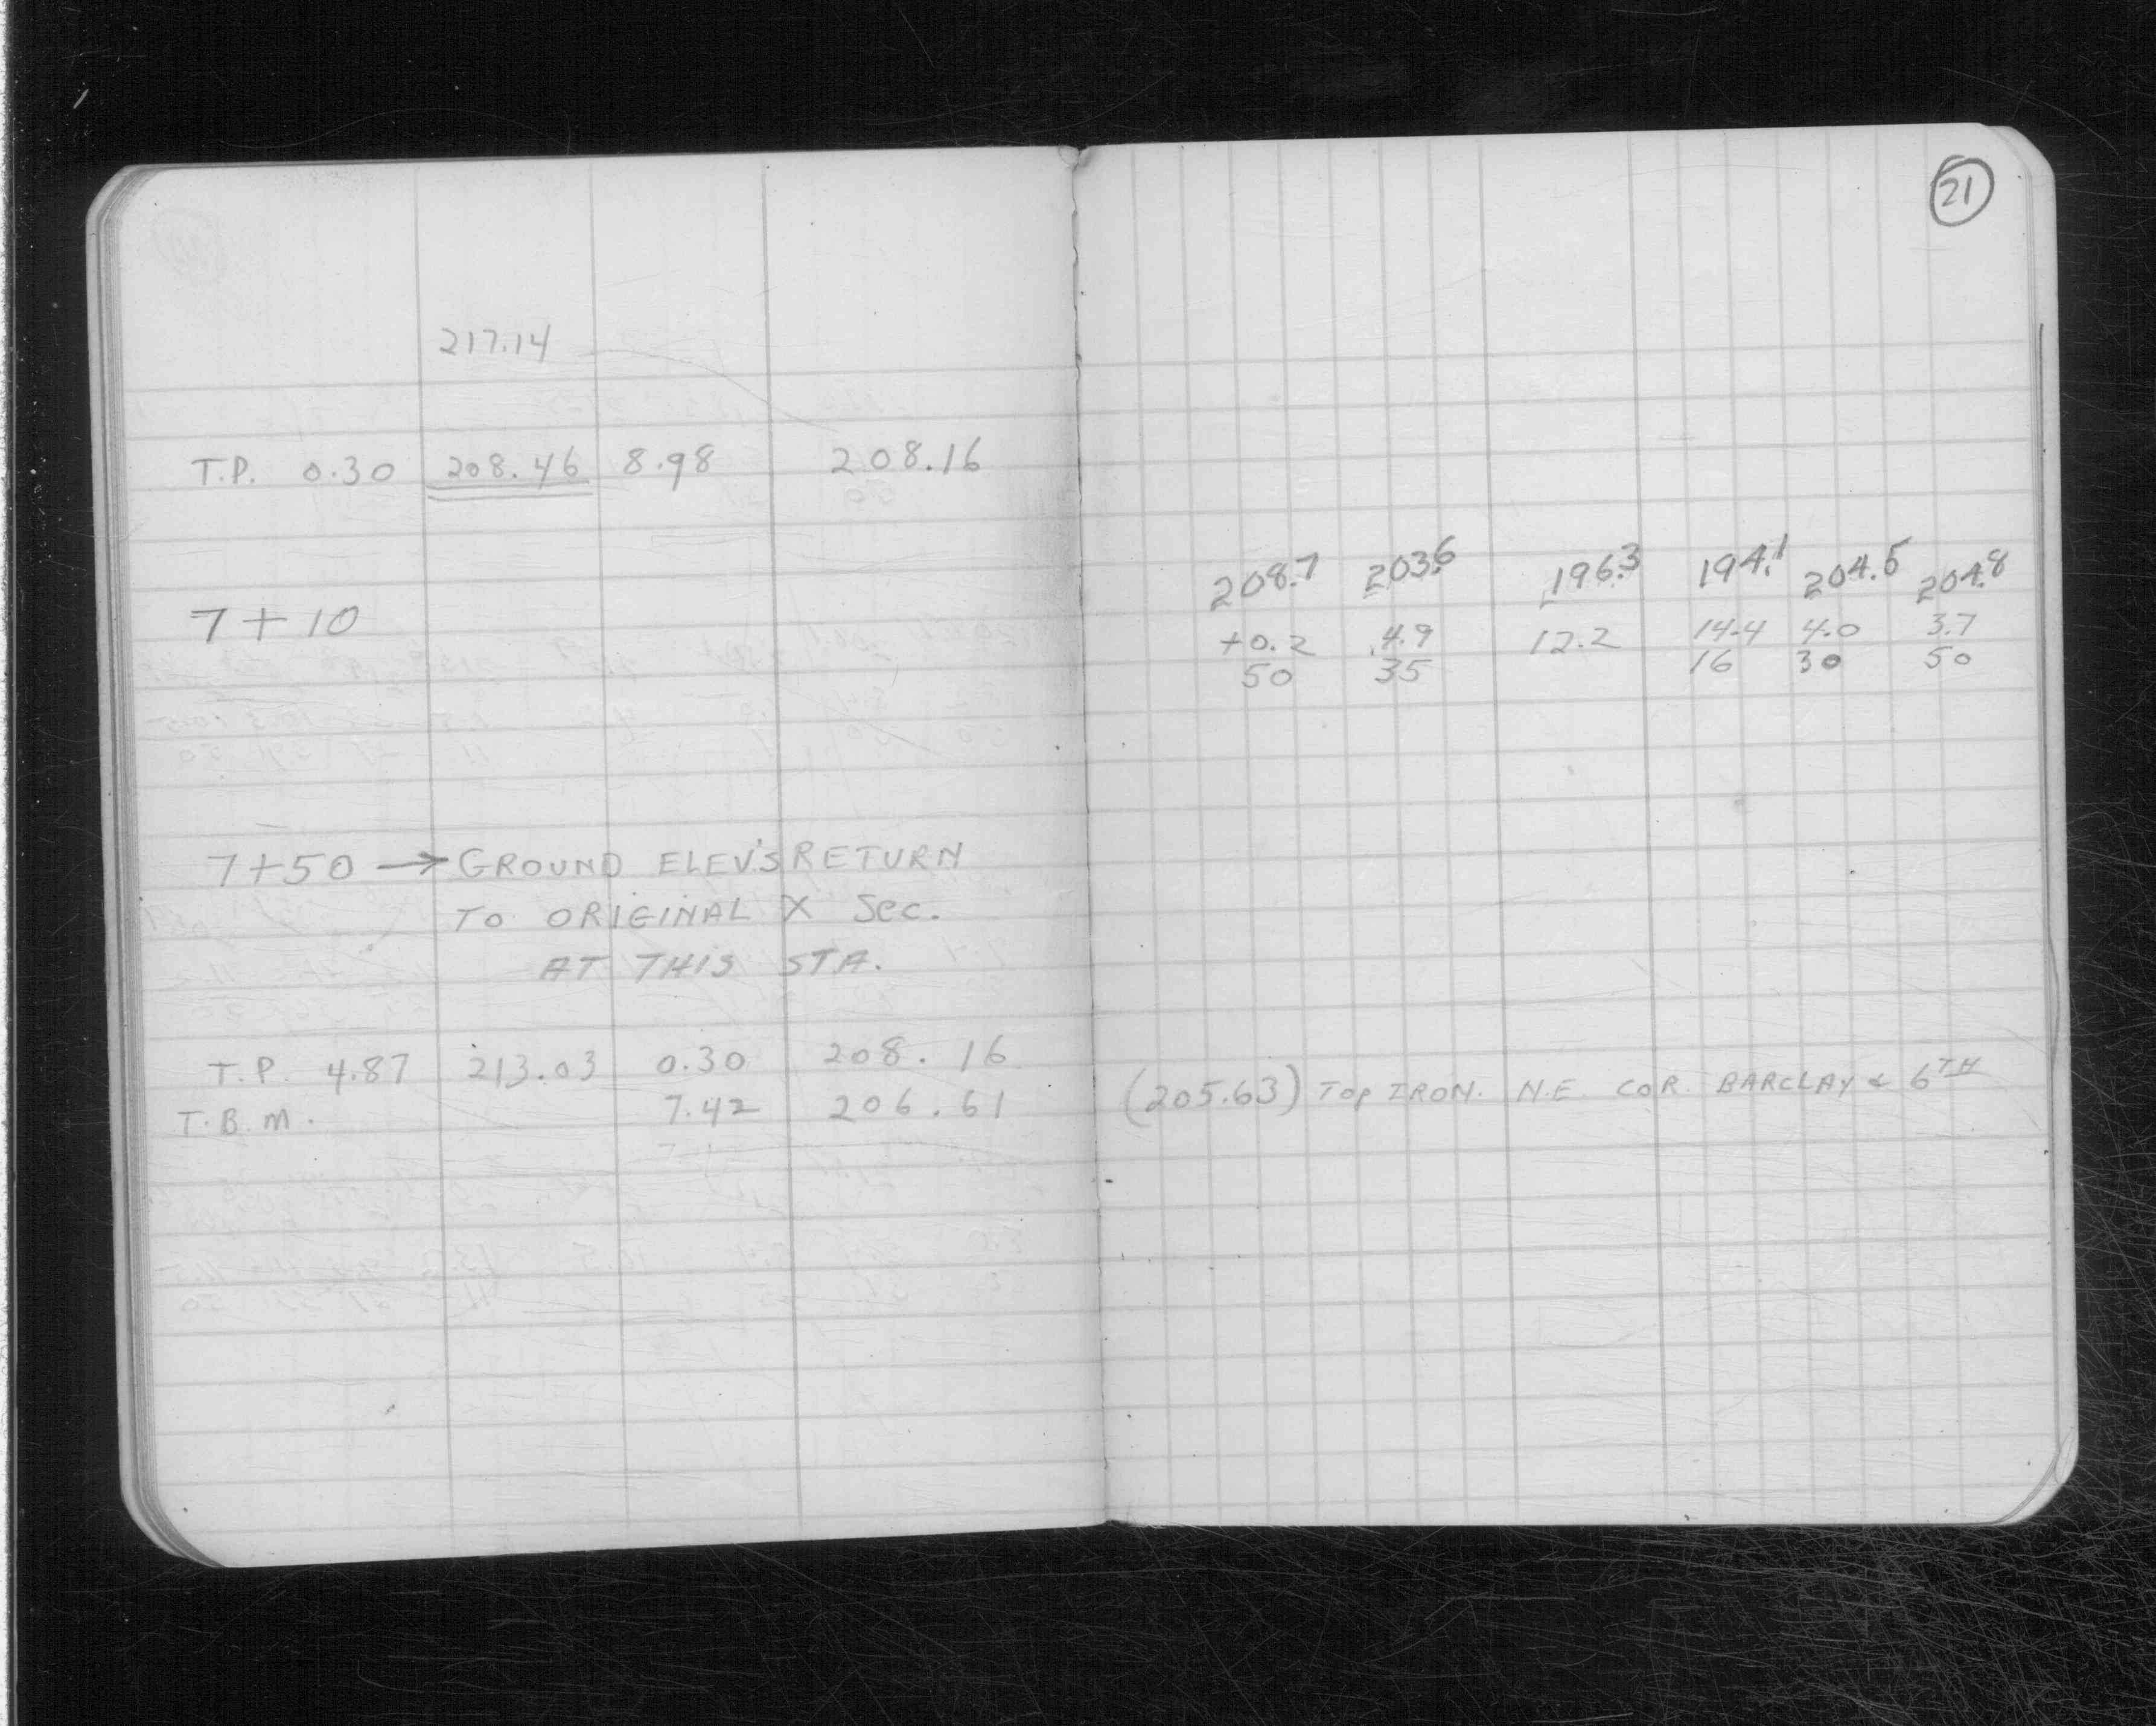 21
217.14
T.P. 0.30 208.46 8.98 208.16
208.7 203.6 196.3 194.1 204.5 204.8
7+10 +0.2 4.9 12.2 14.4 4.0 3.7
50 35 16 30 50
7+50 → GROUND ELEV'S RETURN
TO ORIGINAL X Sec.
AT THIS STA.
T.P. 4.87 213.03 0.30 208.16
T.B.M. 7.42 206.61 (205.63) TOP IRON. N.E. COR. BARCLAY & 6TH